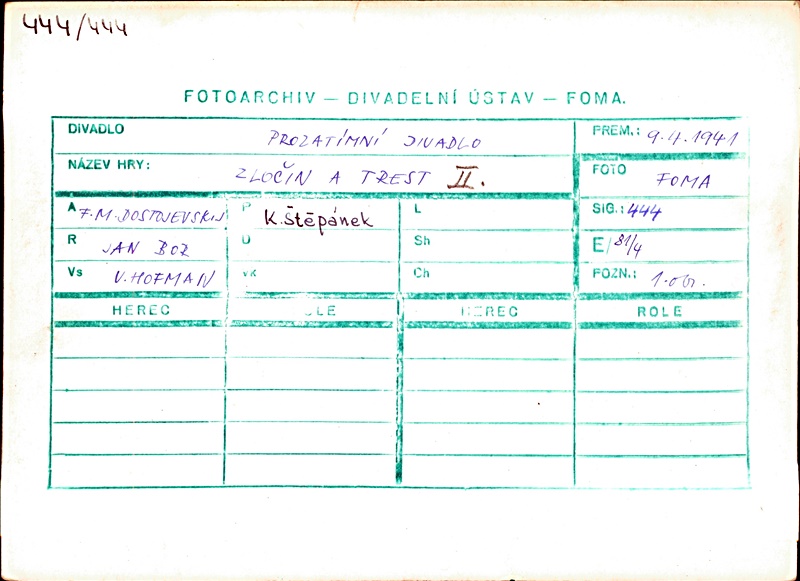 444/444
FOTOARCHIV — DIVADELNÍ ÚSTAV — FOMA.
DIVADLO PROZATÍMNÍ DIVADLO PREM.: 9.4.1941
NÁZEV HRY: ZLOČIN A TREST II. FOTO FOMA
A F.M. DOSTOJEVSKIJ P K. Štěpánek L SIG.: 444
R JAN BOR U Sh E/81/4
Vs V. HOFMAN vk Ch POZN.: 1 obr.
HEREC ROLE HEREC ROLE